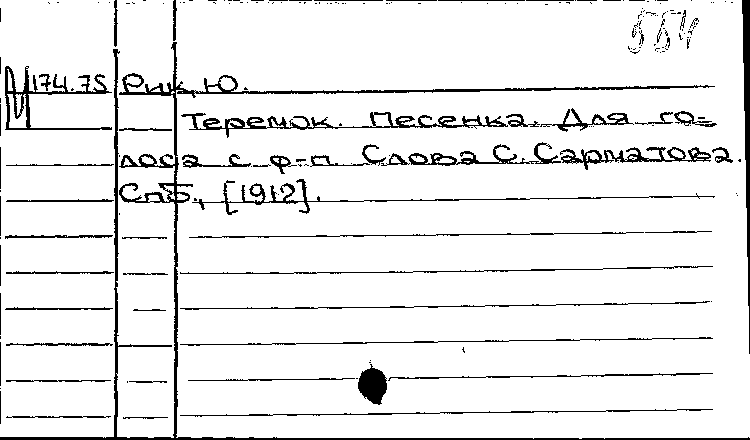 554
М174.75 Рик, Ю.
Теремок. Песенка. Для го-
лоса с ф-п. Слова С. Сарматова.
Спб., [1912].